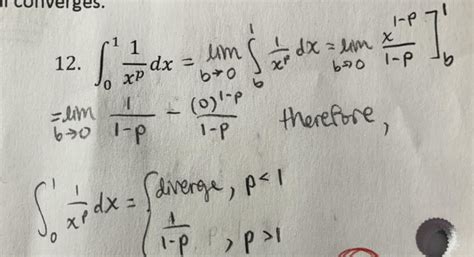 converges.
12. ∫₀¹ 1/xᵖ dx = lim b→0 ∫_b^1 1/xᵖ dx = lim b→0 x^(1-p)/(1-p) ]_b^1
= lim b→0 1/(1-p) - (0)^(1-p)/(1-p) therefore,
∫₀¹ 1/xᵖ dx = { diverge, p<1
1/(1-p), p>1